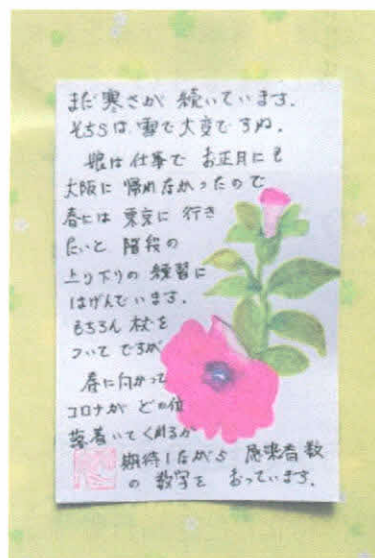 まだ寒さが 続いています。
そちらは 雪で大変ですね。
娘は仕事で お正月にも
大阪に 帰れなかったので
春には 東京に 行き
たいと 階段の
上り下りの 練習に
はげんでいます。
もちろん 杖を
ついて ですが
春に向かって
コロナが どの位
落着いてくれるか
期待しながら 感染者数
の 数字を おっています。